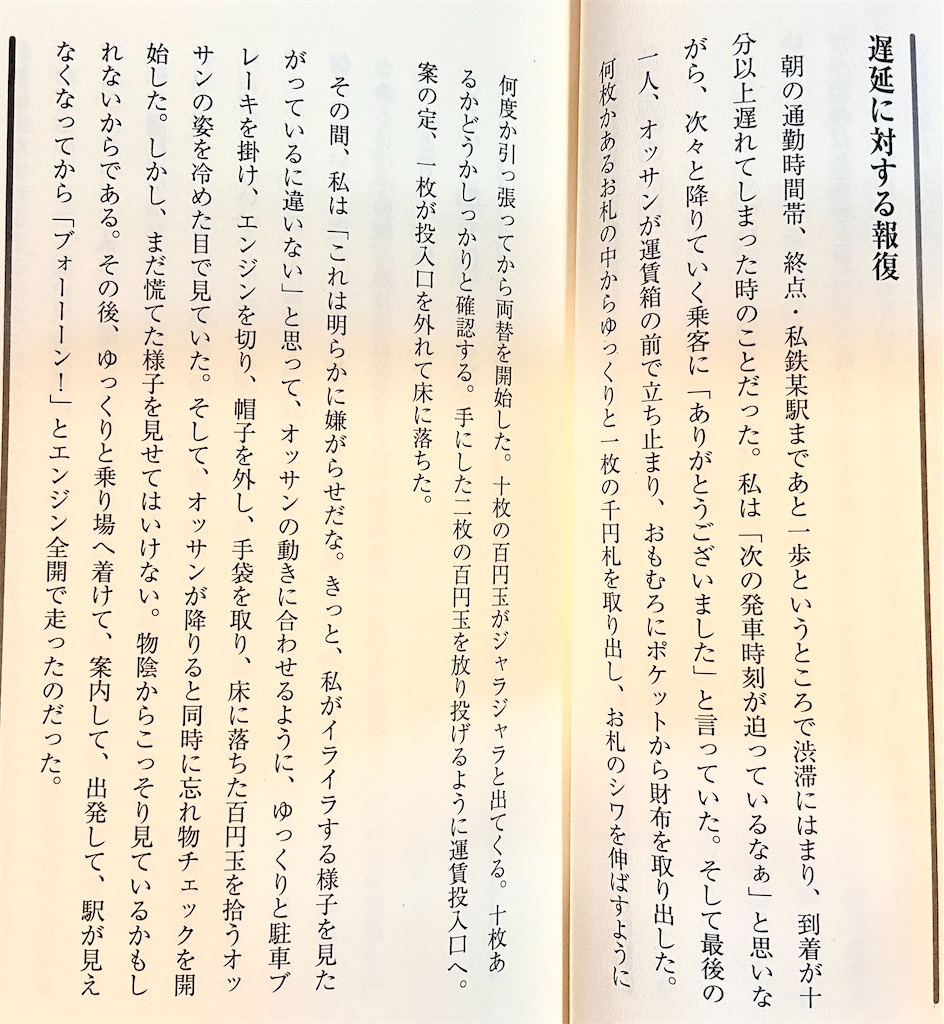 遅延に対する報復
朝の通勤時間帯、終点・私鉄某駅まであと一歩というところで渋滞にはまり、到着が十
分以上遅れてしまった時のことだった。私は「次の発車時刻が迫っているなぁ」と思いな
がら、次々と降りていく乗客に「ありがとうございました」と言っていた。そして最後の
一人、オッサンが運賃箱の前で立ち止まり、おもむろにポケットから財布を取り出した。
何枚かあるお札の中からゆっくりと一枚の千円札を取り出し、お札のシワを伸ばすように
何度か引っ張ってから両替を開始した。十枚の百円玉がジャラジャラと出てくる。十枚あ
るかどうかしっかりと確認する。手にした二枚の百円玉を放り投げるように運賃投入口へ。
案の定、一枚が投入口を外れて床に落ちた。
その間、私は「これは明らかに嫌がらせだな。きっと、私がイライラする様子を見た
がっているに違いない」と思って、オッサンの動きに合わせるように、ゆっくりと駐車ブ
レーキを掛け、エンジンを切り、帽子を外し、手袋を取り、床に落ちた百円玉を拾うオッ
サンの姿を冷めた目で見ていた。そして、オッサンが降りると同時に忘れ物チェックを開
始した。しかし、まだ慌てた様子を見せてはいけない。物陰からこっそり見ているかもし
れないからである。その後、ゆっくりと乗り場へ着けて、案内して、出発して、駅が見え
なくなってから「ブォーーーン!」とエンジン全開で走ったのだった。